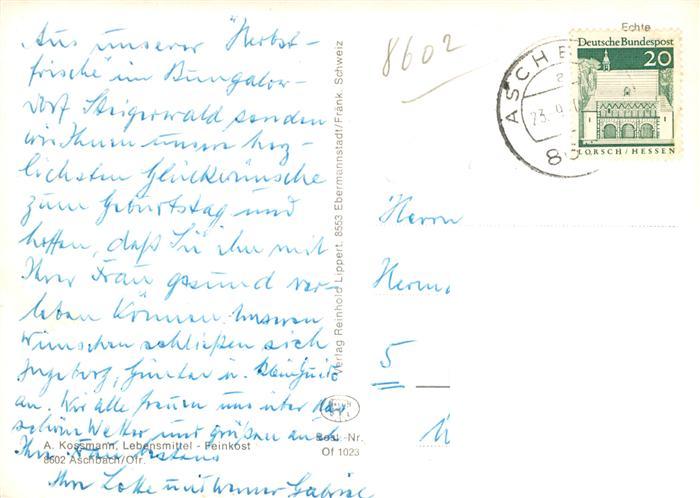 Aus unserer "Herbst-
frische" im Bungalow-
Dorf Steigerwald senden
wir Ihnen unsere herz-
lichsten Glückwünsche
zum Geburtstag und
hoffen, daß Sie ihn mit
Ihrer Frau gesund ver-
leben können. Unseren
Wünschen schließen sich
Ingeborg, Günter u.
an. Wir alle freuen uns über das
schöne Wetter und grüßen auch
Ihre Frau bestens
Ihre Lotte und Werner Gabriel
A. Kossmann, Lebensmittel - Feinkost
8602 Aschbach/Ofr.
Verlag Reinhold Lippert, 8553 Ebermannstadt/Fränk. Schweiz
Best.-Nr.
Of 1023
8602
Echte
Deutsche Bundespost
20
LORSCH/HESSEN
ASCHB
23.9.
86
Herrn
Herm
5